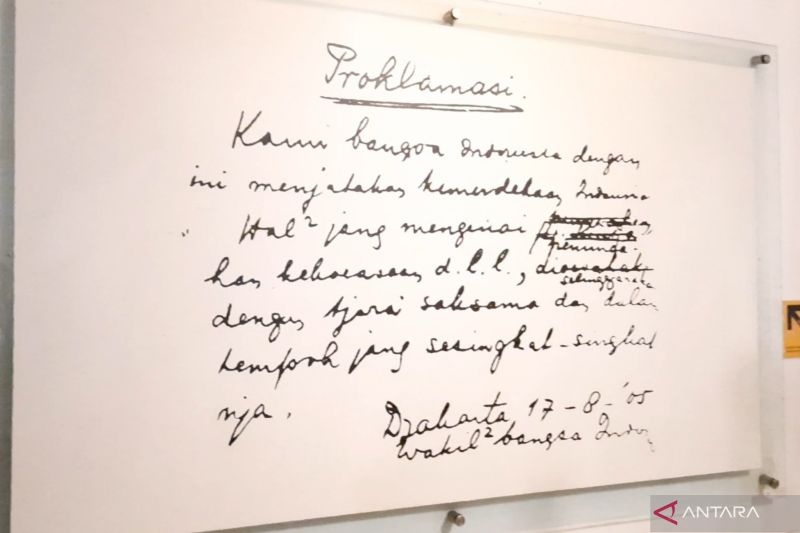 Proklamasi.
Kami bangsa Indonesia dengan
ini menjatakan kemerdekaan Indonesia
Hal² jang mengenai
peminda-
han kekoeasaan d.l.l.,
diselenggarakan
dengan tjara saksama dan dalam
tempoh jang sesingkat-singkat
nja.
Djakarta, 17-8-'05
Wakil² bangsa Indon
ANTARA